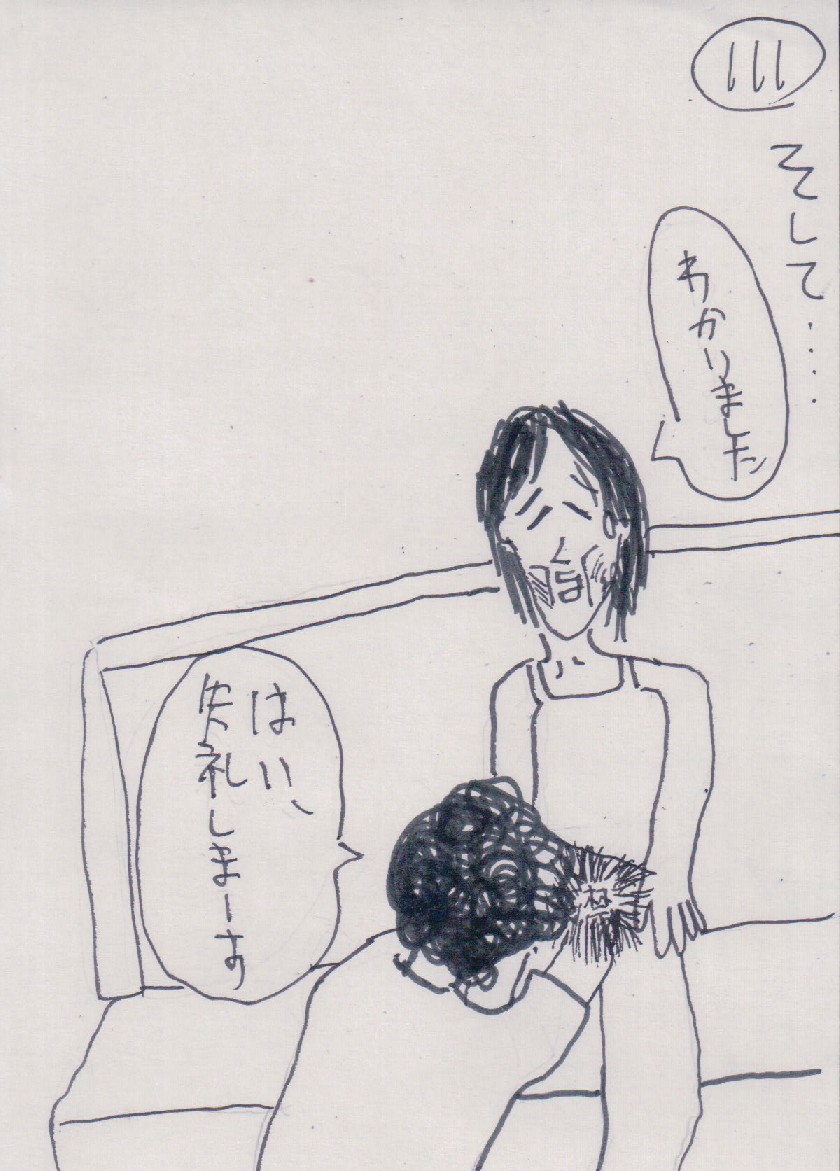 111
そして‥‥
わかりました
はい、
失礼しまーす